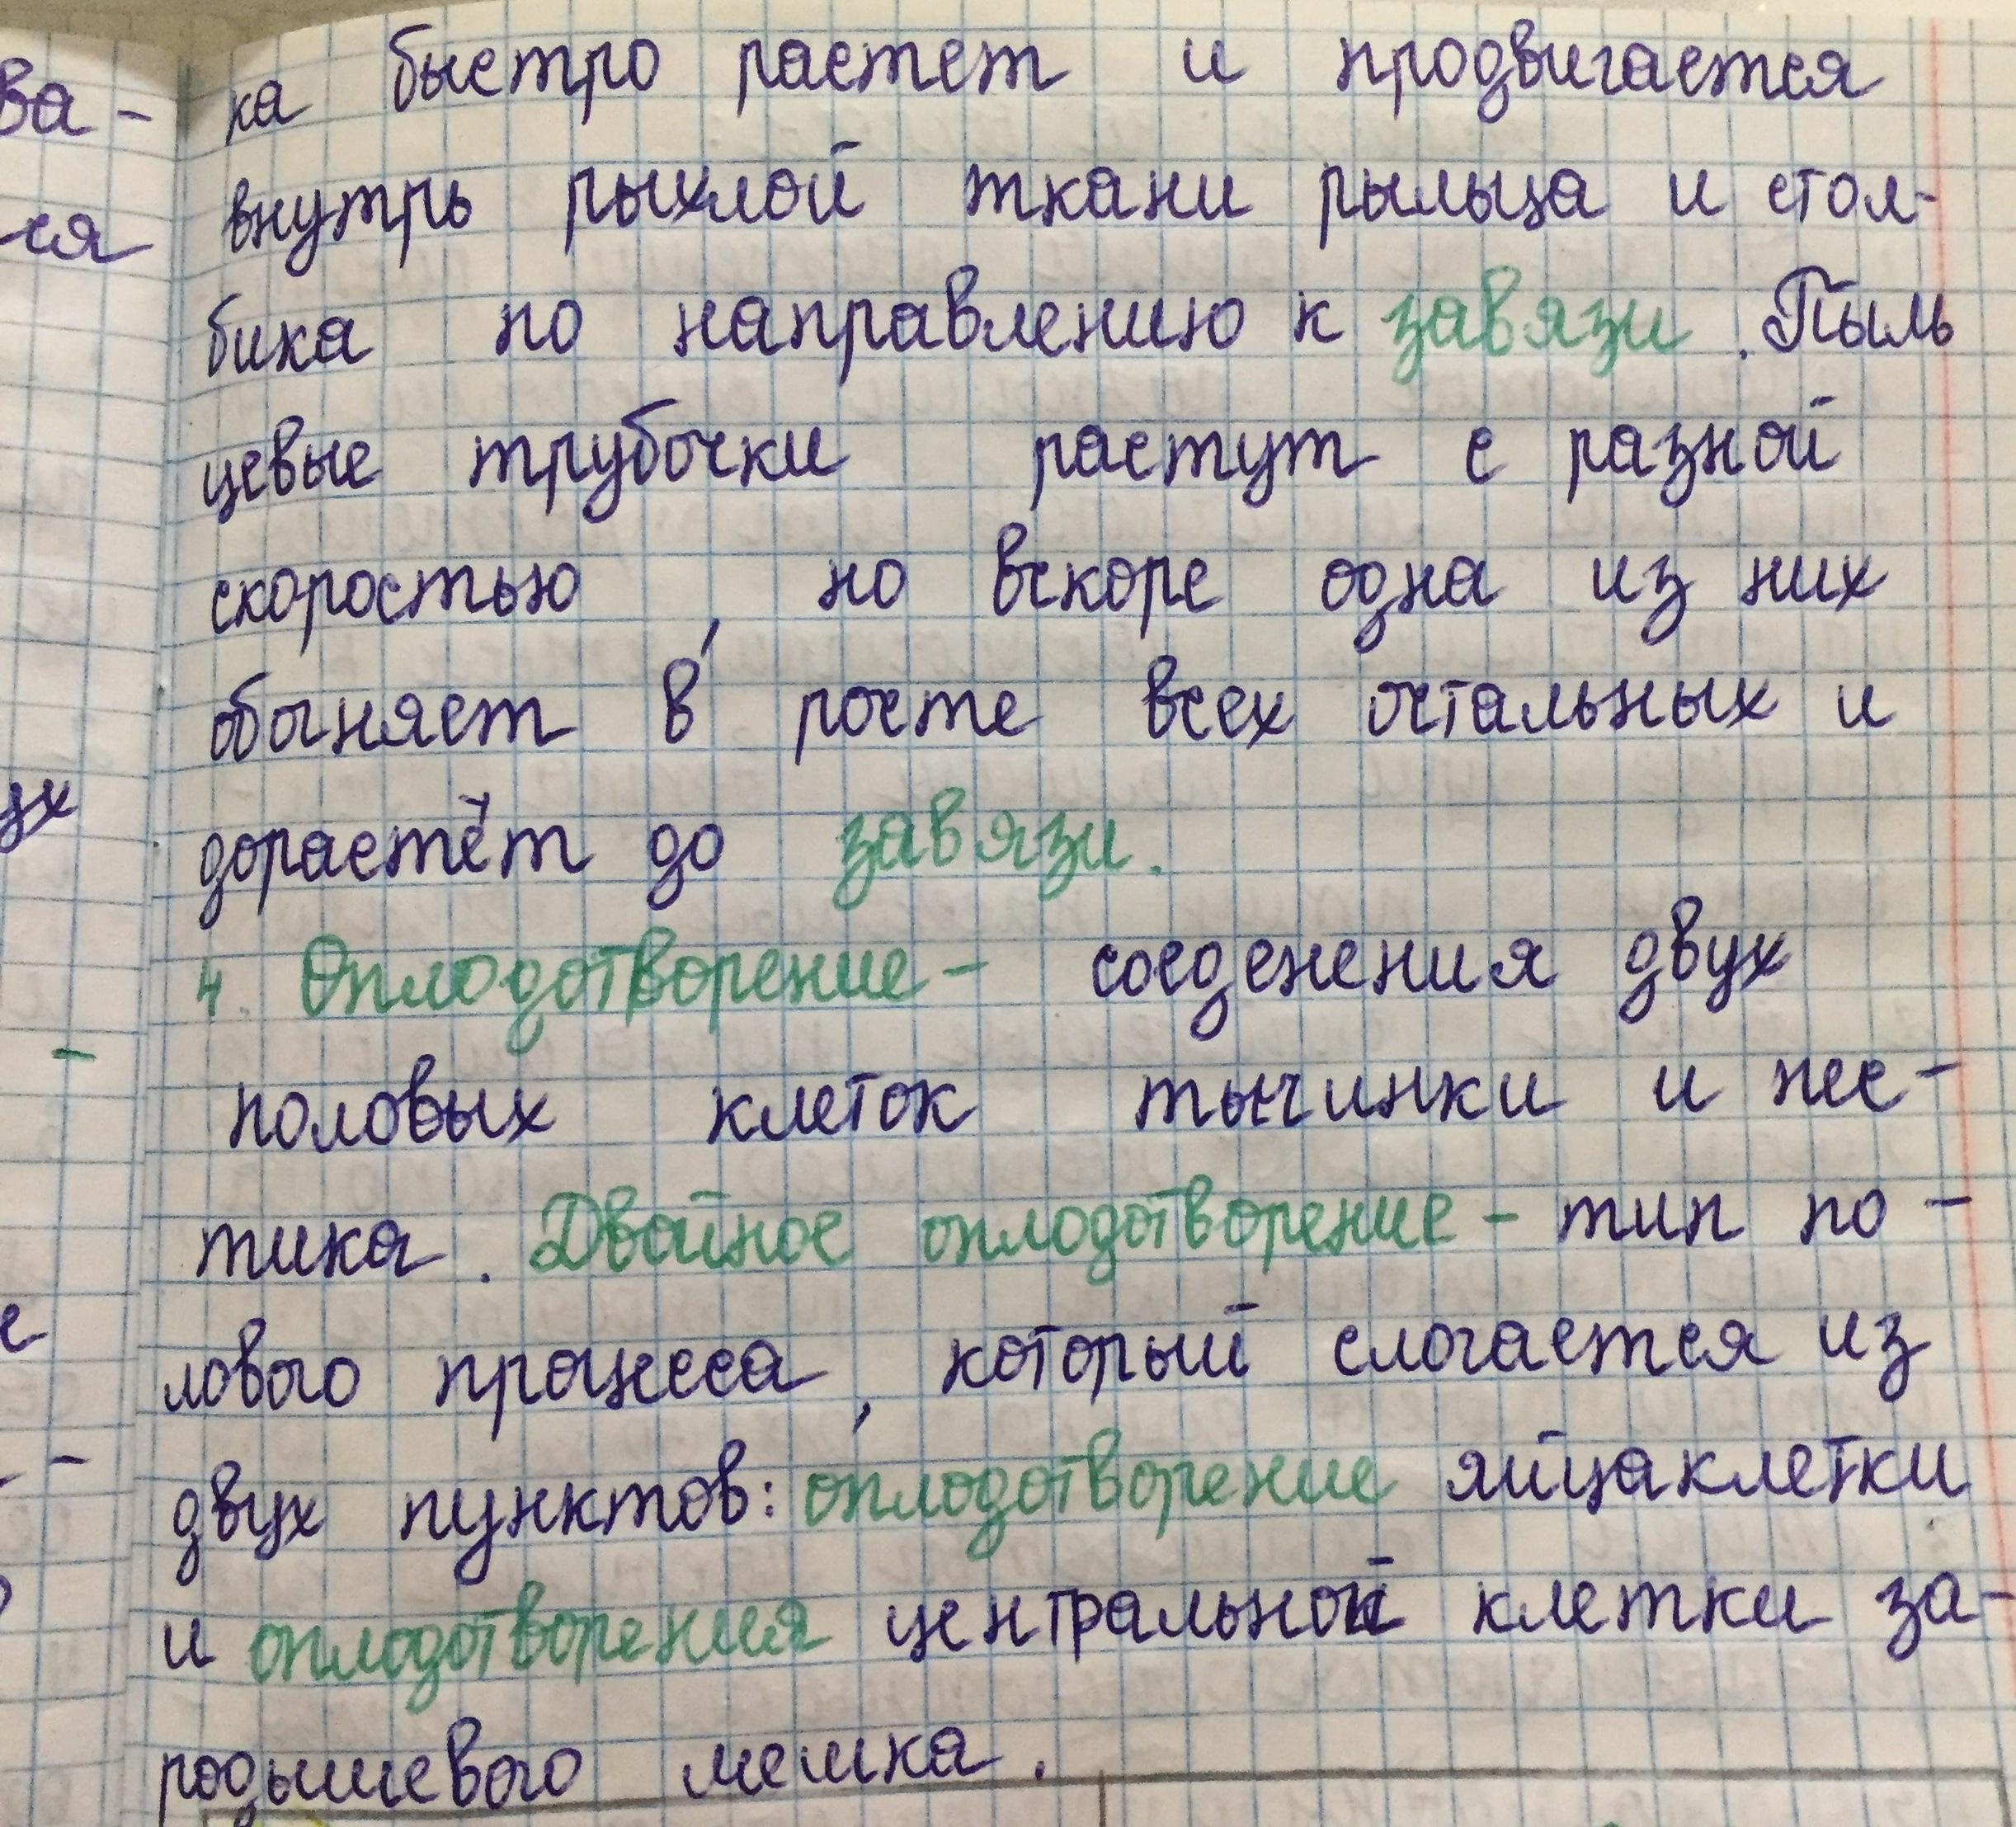 ка быстро растет и продвигается
внутрь рыхлой ткани рыльца и стол-
бика по направлению к завязи. Пыль
цевые трубочки растут с разной
скоростью, но вскоре одна из них
обгоняет в росте всех остальных и
дорастёт до завязи.
4. Оплодотворение - соеденения двух
половых клеток тычинки и пес-
тика. Двойное оплодотворение - тип по-
лового процесса, который слогается из
двух пунктов: оплодотворение яйцаклетки
и оплодотворения центральной клетки за-
родышевого мешка.